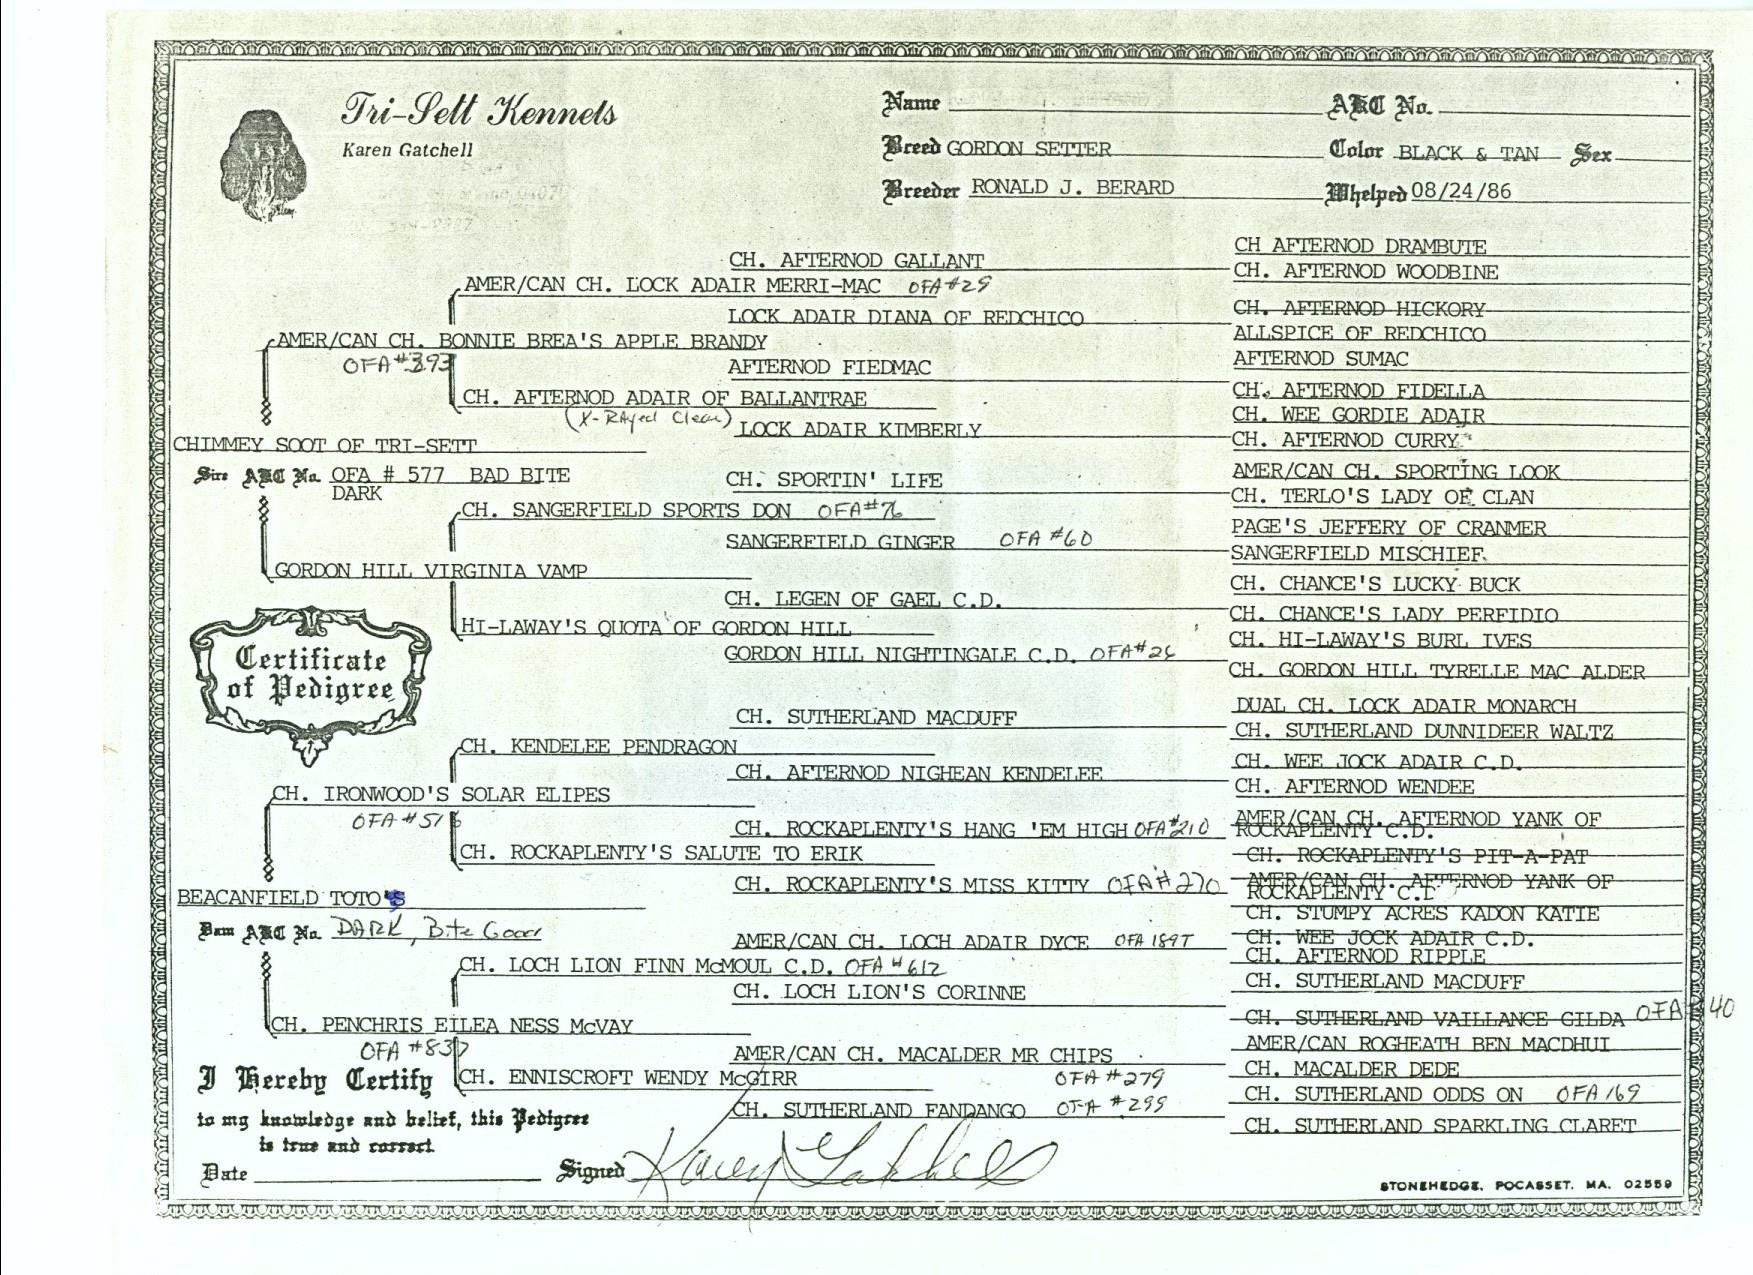 Tri-Sett Kennels
Karen Gatchell
Name
AKC No.
Breed GORDON SETTER
Color BLACK & TAN Sex
Breeder RONALD J. BERARD
Whelped 08/24/86
CH AFTERNOD DRAMBUTE
CH. AFTERNOD GALLANT
CH. AFTERNOD WOODBINE
AMER/CAN CH. LOCK ADAIR MERRI-MAC OFA #29
CH. AFTERNOD HICKORY
LOCK ADAIR DIANA OF REDCHICO
ALLSPICE OF REDCHICO
AMER/CAN CH. BONNIE BREA'S APPLE BRANDY
OFA #393
AFTERNOD SUMAC
AFTERNOD FIEDMAC
CH. AFTERNOD FIDELLA
CH. AFTERNOD ADAIR OF BALLANTRAE
(X-RAyed Clear)
CH. WEE GORDIE ADAIR
LOCK ADAIR KIMBERLY
CH. AFTERNOD CURRY
CHIMMEY SOOT OF TRI-SETT
Sire AKC No. OFA # 577 BAD BITE
DARK
AMER/CAN CH. SPORTING LOOK
CH. SPORTIN' LIFE
CH. TERLO'S LADY OF CLAN
CH. SANGERFIELD SPORTS DON OFA #76
PAGE'S JEFFERY OF CRANMER
SANGERFIELD GINGER OFA #60
SANGERFIELD MISCHIEF
GORDON HILL VIRGINIA VAMP
CH. CHANCE'S LUCKY BUCK
CH. LEGEN OF GAEL C.D.
CH. CHANCE'S LADY PERFIDIO
HI-LAWAY'S QUOTA OF GORDON HILL
CH. HI-LAWAY'S BURL IVES
GORDON HILL NIGHTINGALE C.D. OFA #26
CH. GORDON HILL TYRELLE MAC ALDER
Certificate
of Pedigree
DUAL CH. LOCK ADAIR MONARCH
CH. SUTHERLAND MACDUFF
CH. SUTHERLAND DUNNIDEER WALTZ
CH. KENDELEE PENDRAGON
CH. WEE JOCK ADAIR C.D.
CH. AFTERNOD NIGHEAN KENDELEE
CH. AFTERNOD WENDEE
CH. IRONWOOD'S SOLAR ELIPES
OFA #516
AMER/CAN CH. AFTERNOD YANK OF
ROCKAPLENTY C.D.
CH. ROCKAPLENTY'S HANG 'EM HIGH OFA #210
CH. ROCKAPLENTY'S PIT-A-PAT
CH. ROCKAPLENTY'S SALUTE TO ERIK
AMER/CAN CH. AFTERNOD YANK OF
ROCKAPLENTY
CH. ROCKAPLENTY'S MISS KITTY OFA #270
CH. STUMPY ACRES KADON KATIE
BEACANFIELD TOTO'S
Dam AKC No. DARK, Bite Good
CH. WEE JOCK ADAIR C.D.
AMER/CAN CH. LOCH ADAIR DYCE OFA 189T
CH. AFTERNOD RIPPLE
CH. LOCH LION FINN McMOUL C.D. OFA #612
CH. SUTHERLAND MACDUFF
CH. LOCH LION'S CORINNE
CH. SUTHERLAND VAILLANCE GILDA OFA #40
CH. PENCHRIS EILEA NESS McVAY
OFA #837
AMER/CAN ROGHEATH BEN MACDHUI
AMER/CAN CH. MACALDER MR CHIPS
OFA #279
CH. MACALDER DEDE
CH. ENNISCROFT WENDY McGIRR
CH. SUTHERLAND ODDS ON OFA 169
CH. SUTHERLAND FANDANGO OFA #299
CH. SUTHERLAND SPARKLING CLARET
I Hereby Certify
to my knowledge and belief, this Pedigree
is true and correct.
Date
Signed Karen Gatchell
STONEHEDGE, POCASSET, MA. 02559